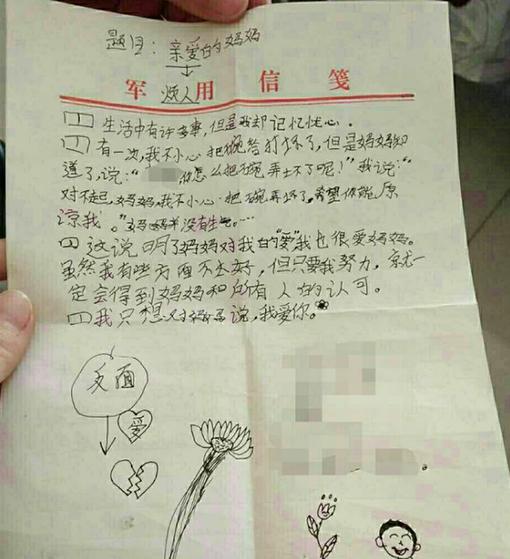 题目：亲爱的妈妈
军用信笺
烦人
生活中有许多事，但是我却记忆忧心。
有一次，我不小心把碗打坏了，但是妈妈知
道了，说：“你怎么把碗弄了呢！”我说：“
对不起，妈妈，我不小心把碗弄坏了，希望你能原
谅我。”妈妈并没有生气…
这说明了妈妈对我的“爱”我也很爱妈妈。
虽然我有些方面不太好，但只要我努力，就一
定会得到妈妈和所有人的认可。
我只想对妈妈说，我爱你。
反面
爱